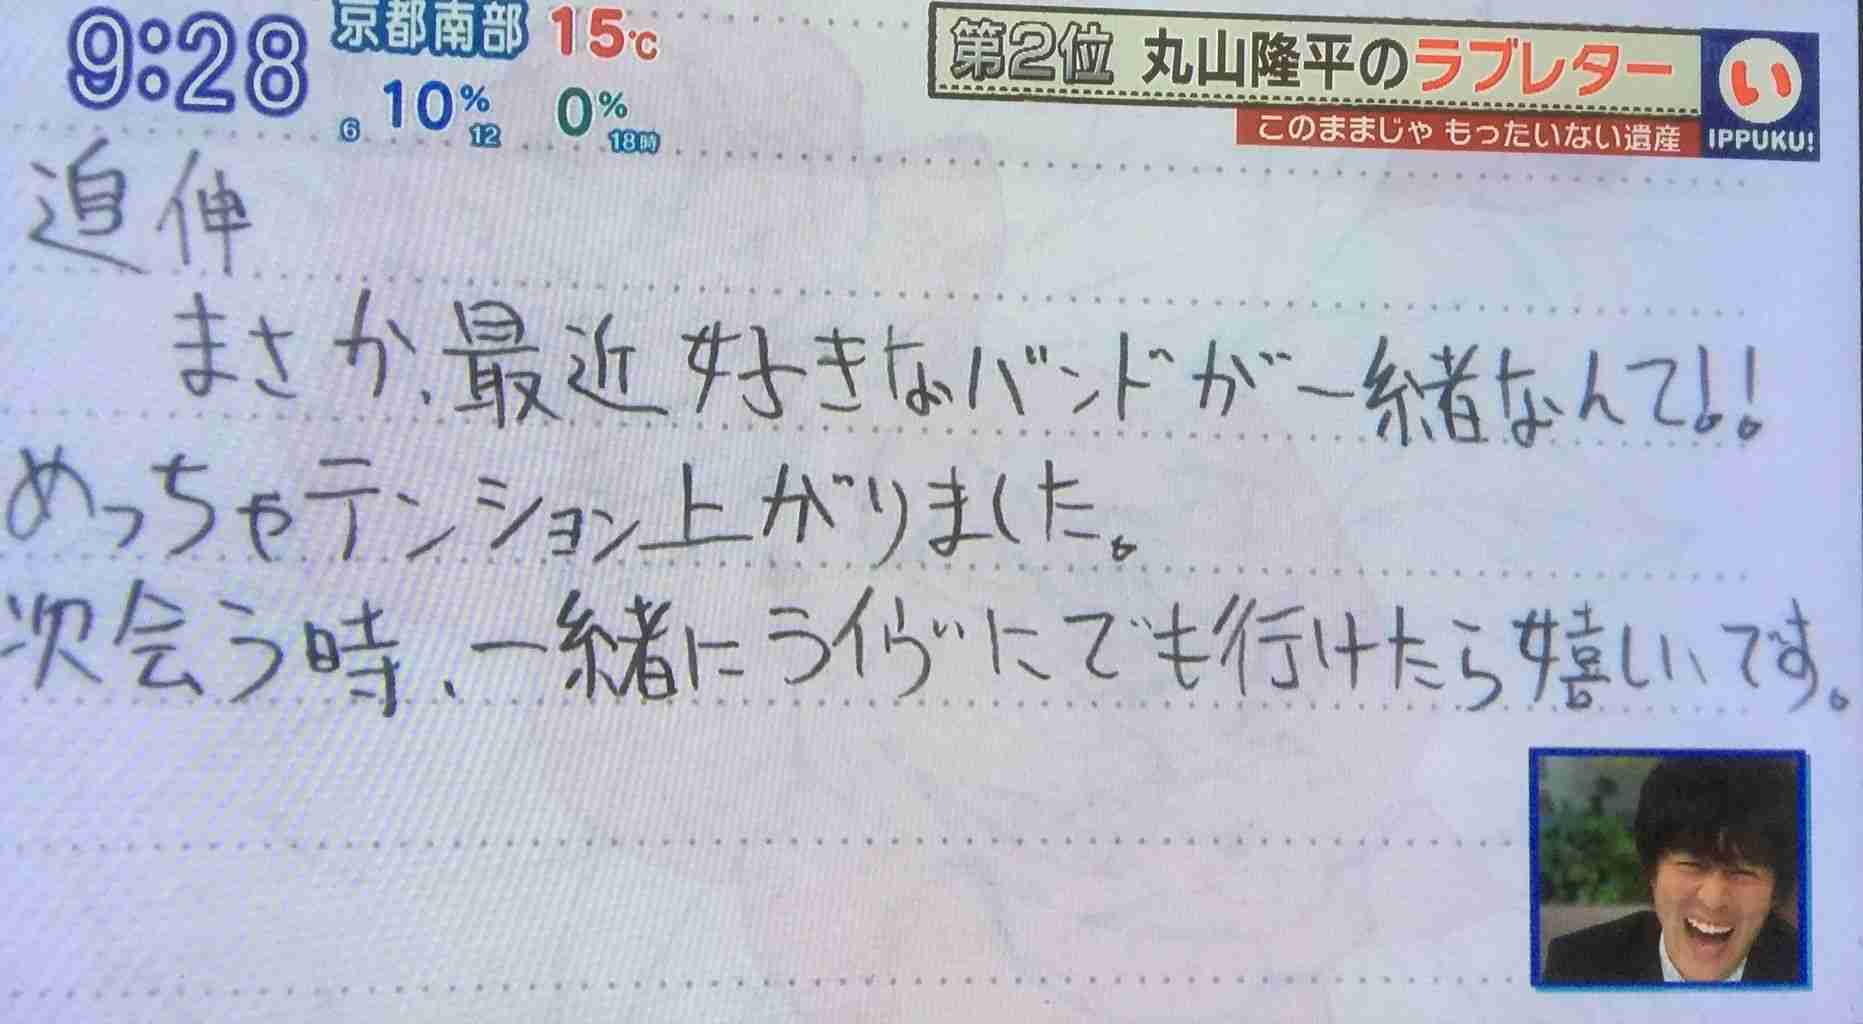 9:28
京都南部 15℃
6 10% 12 0% 18時
第2位 丸山隆平のラブレター
い
このままじゃ もったいない遺産
IPPUKU!
追伸
まさか、最近好きなバンドが一緒なんて!!
めっちゃテンション上がりました。
次会う時、一緒にライヴにでも行けたら嬉しいです。